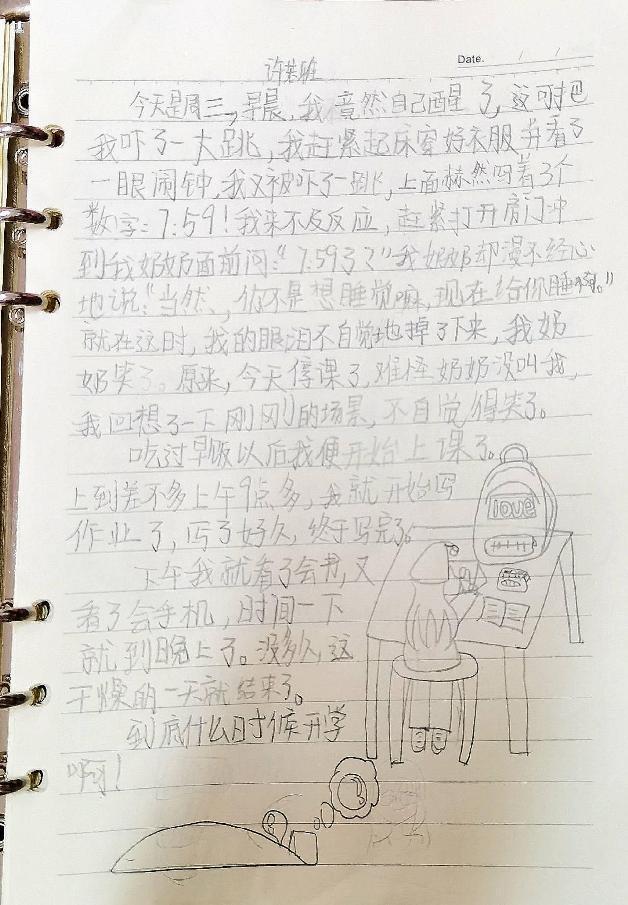 Date. / /
许若班
今天是周三,早晨,我竟然自己醒了,这可把
我吓了一大跳,我赶紧起床穿好衣服并看了
一眼闹钟,我又被吓了一跳,上面赫然写着3个
数字:7:59!我来不及反应,赶紧打开房门冲
到我奶奶面前问:“7:59了?”我奶奶却漫不经心
地说:“当然,你不是想睡觉嘛,现在给你睡啊。”
就在这时,我的眼泪不自觉地掉了下来,我奶
奶笑了。原来,今天停课了,难怪奶奶没叫我,
我回想了一下刚刚的场景,不自觉得笑了。
吃过早饭以后我便开始上课了。
上到差不多上午9点多,我就开始写
作业了,写了好久,终于写完了。
下午我就看了会书,又
看了会手机,时间一下
就到晚上了。没多久,这
干燥的一天就结束了。
到底什么时候开学
啊!
love